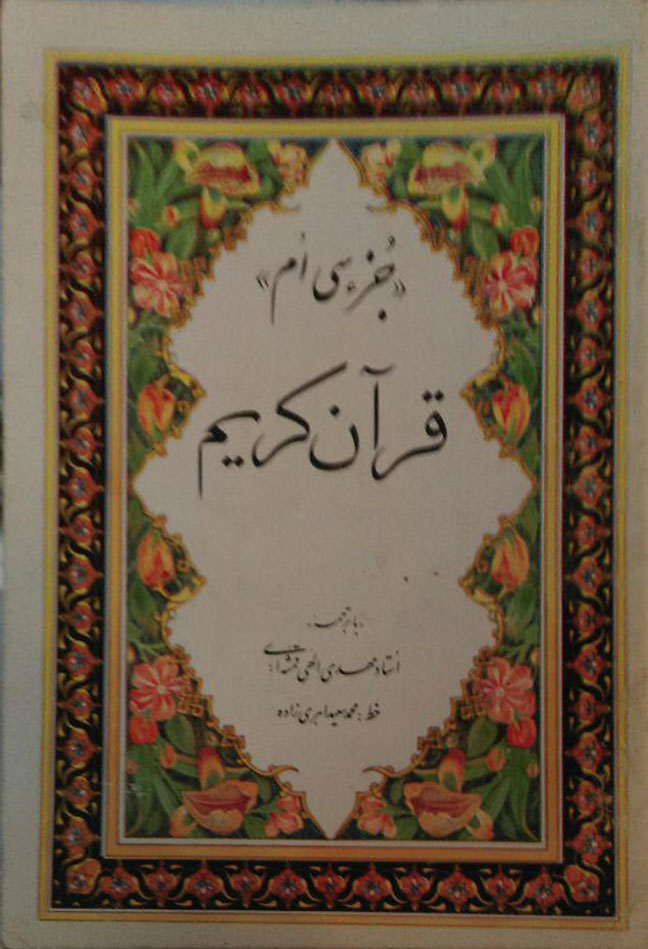 «جُزءِ سی اُم»
قرآن کریم
با ترجمه:
اُستاد مهدی الهی قمشه‌ای
خط: محمد سعید امیری زاده